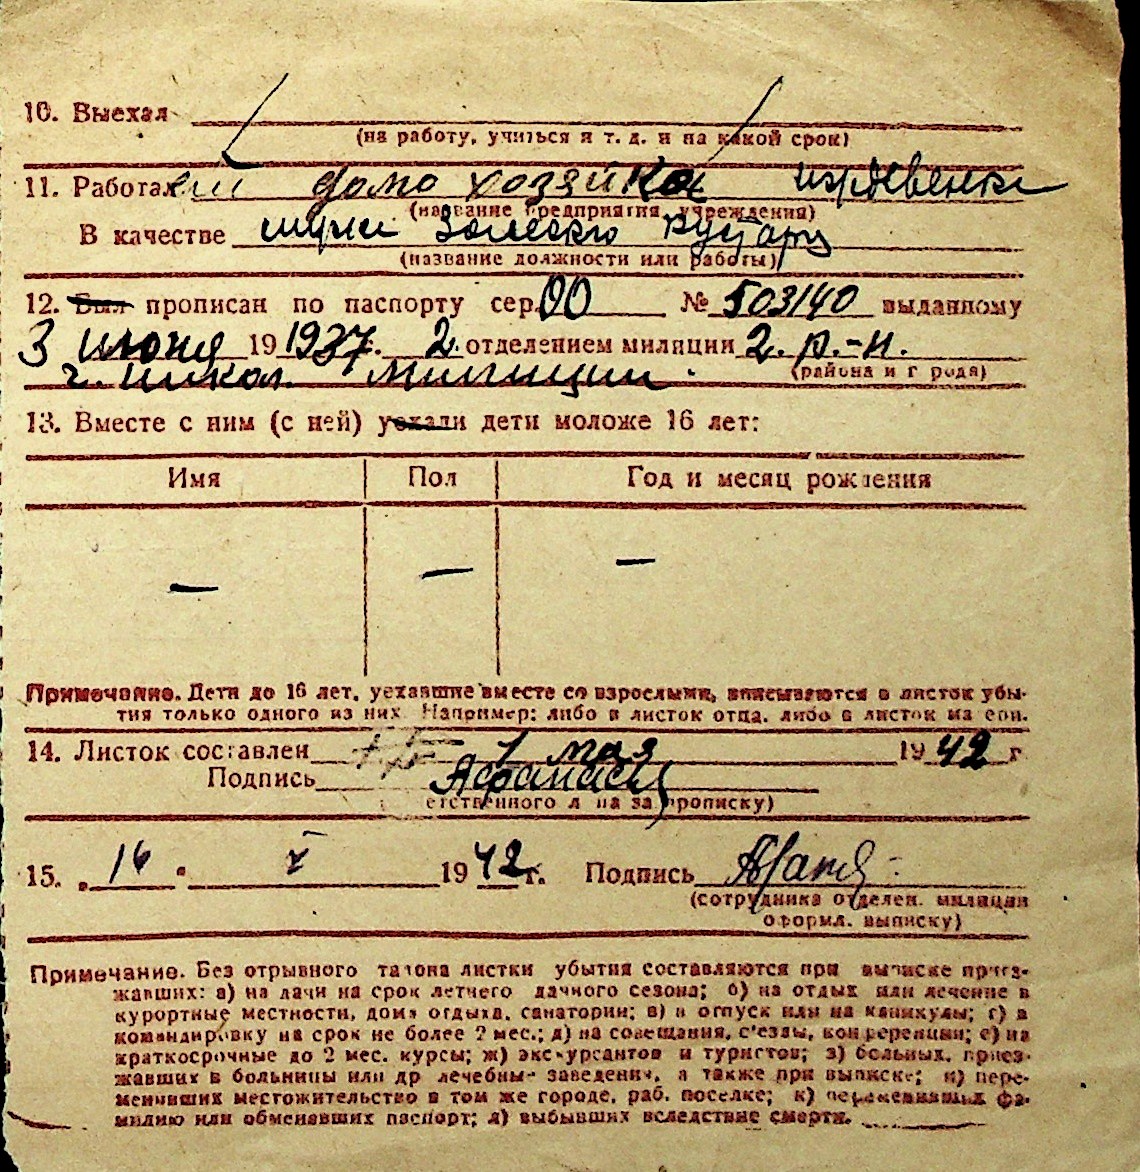 10. Выехал
(на работу, учиться и т. д. и на какой срок)
11. Работал домо хозяйка иждевенка
(название предприятия, учреждения)
В качестве кустаря
(название должности или работы)
12. Был прописан по паспорту сер. ОО № 503140 выданному
3 июня 19 1937 г. 2. отделением милиции 2. р.-н.
(района и города)
г. никол. милиции.
13. Вместе с ним (с ней) уехали дети моложе 16 лет:
Имя Пол Год и месяц рождения
— — —
Примечание. Дети до 16 лет, уехавшие вместе со взрослыми, вписываются в листок убы-
тия только одного из них. Например: либо в листок отца, либо в листок матери.
14. Листок составлен 1 мая 1942 г
Подпись
(ответственного лица за прописку)
15. „16" V 1942 г. Подпись
(сотрудника отделен. милиции
оформл. выписку)
Примечание. Без отрывного талона листки убытия составляются при выписке приез-
жавших: а) на дачи на срок летнего дачного сезона; б) на отдых или лечение в
курортные местности, дома отдыха, санатории; в) в отпуск или на каникулы; г) в
командировку на срок не более 2 мес.; д) на совещания, с'езды, конференции; е) на
краткосрочные до 2 мес. курсы; ж) экскурсантов и туристов; з) больных, приез-
жавших в больницы или др лечебные заведения, а также при выписке; и) пере-
менивших местожительство в том же городе, раб. поселке; к) переменивших фа-
милию или обменявших паспорт; л) выбывших вследствие смерти.